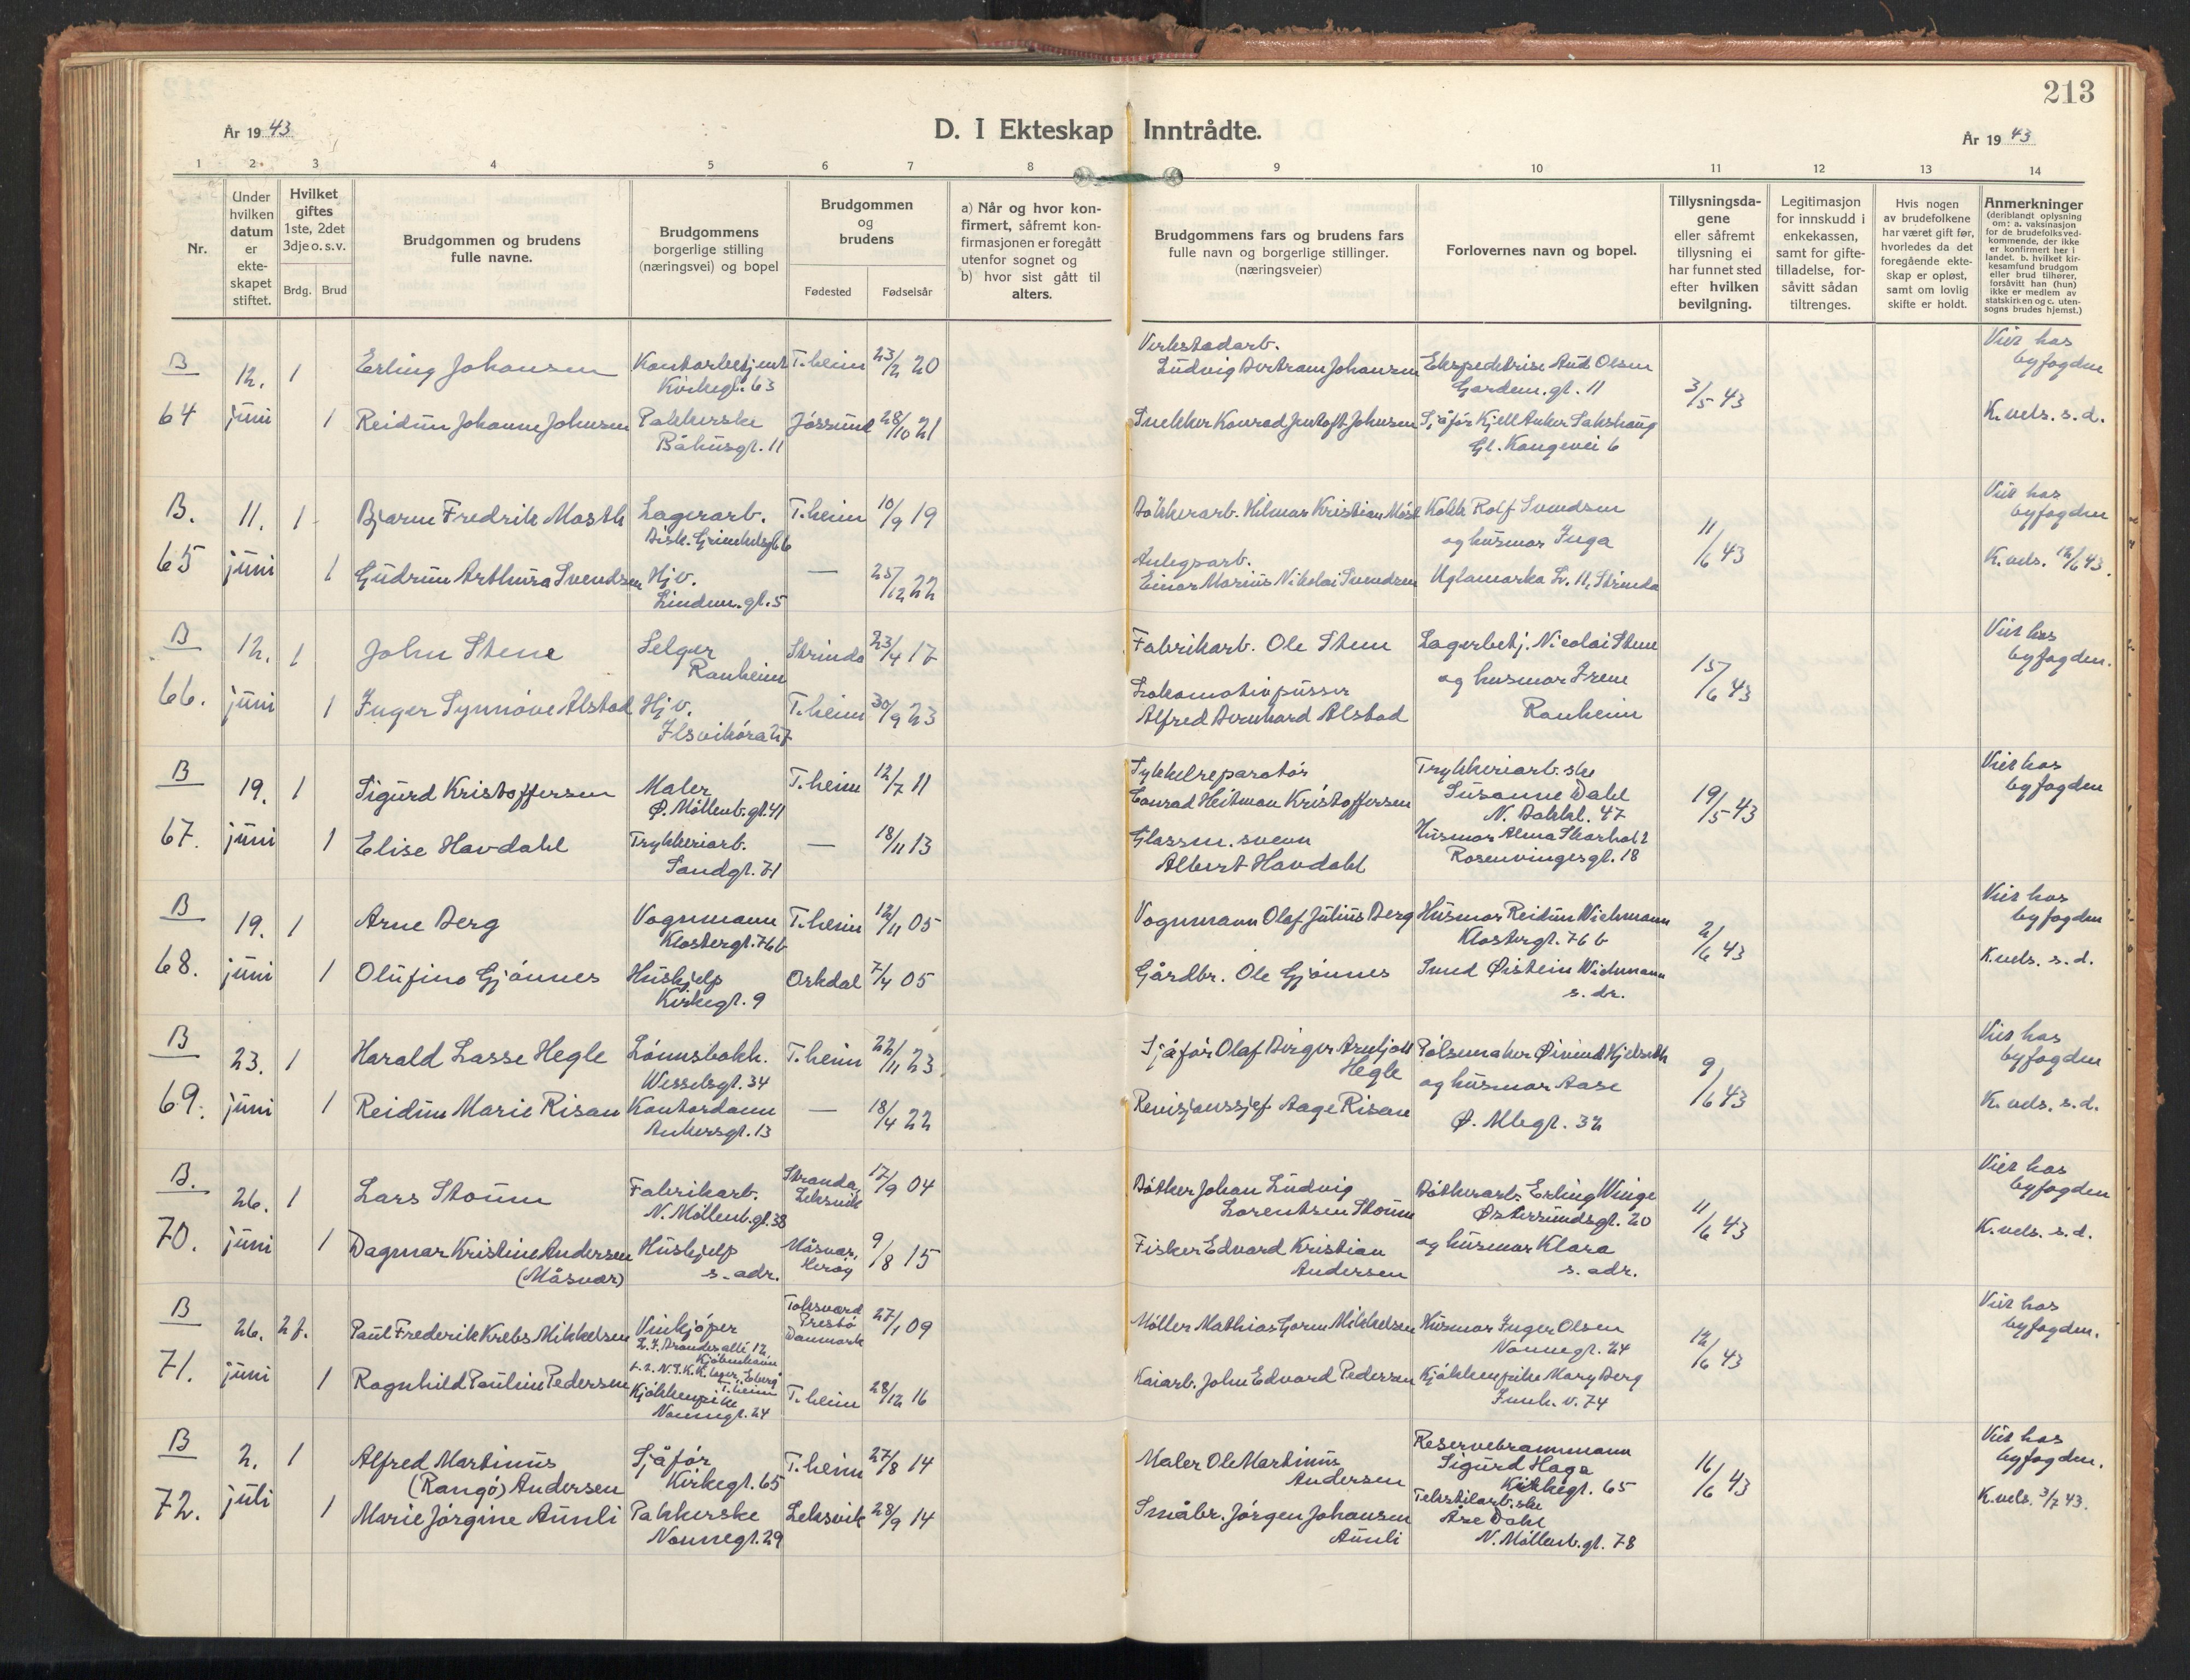 213
År 1943
D. I Ekteskap Inntrådte.
År 1943
1 2 3 4 5 6 7 8 9 10 11 12 13 14
Nr.
Under hvilken datum er ekte-skapet stiftet.
Hvilket giftes 1ste, 2det 3dje o. s. v.
Brdg. Brud
Brudgommen og brudens fulle navne.
Brudgommens borgerlige stilling (næringsvei) og bopel
Brudgommen og brudens
Fødested Fødselsår
a) Når og hvor kon-firmert, såfremt kon-firmasjonen er foregått utenfor sognet og
b) hvor sist gått til alters.
Brudgommens fars og brudens fars fulle navn og borgerlige stillinger. (næringsveier)
Forlovernes navn og bopel.
Tillysningsda-gene eller såfremt tillysning ei har funnet sted efter hvilken bevilgning.
Legitimasjon for innskudd i enkekassen, samt for gifte-tilladelse, for-såvitt sådan tiltrenges.
Hvis nogen av brudefolkene har været gift før, hvorledes da det foregående ekte-skap er opløst, samt om lovlig skifte er holdt.
Anmerkninger (deriblandt oplysning om: a. vaksinasjon for de brudefolksved-kommende, der ikke er konfirmert her i landet. b. hvilket kir-kesamfund brudgom eller brud tilhører, forsåvitt han (hun) ikke er medlem av statskirken og c. uten-sogns brudes hjemst.)
B 64
12. juni
1
Erling Johansen
Kontorbetjent
Kirkegt. 63
T.heim 23/2 20
Verkstadarb.
Ludvig Bertram Johansen
Ekspeditrise Aud Olsen
Gardem. gt. 11
3/5 43
Viet hos byfogden
1
Reidun Johanne Johnsen
Pakkerske
Båhusgt. 11
Jøssund 28/10 21
Snekker Konrad Jentoft Johnsen
Sjåfør Kjell Anker Sakshaug
Gl. Kongevei 6
K. vels. s. d.
B. 65
11. juni
1
Bjarne Fredrik Mosth
Lagerarb.
Bisk. Grimkelsgt. 6
T.heim 10/9 19
Bøkkerarb. Hilmar Kristian Most
Kokk Rolf Svendsen
og husmor Inga
Uglamarka Lv. 11, Strinda
11/6 43
Viet hos byfogden
1
Gudrun Arthura Svendsen
Hjv.
Lindem. gt. 5
— 25/12 22
Anlegsarb.
Einar Marius Nikolai Svendsen
K. vels. 12/6 43.
B 66.
12. juni
1
John Stene
Selger
Ranheim
Strinda 23/4 17
Fabrikarb. Ole Stene
Lagerbetj. Nicolai Stene
og husmor Irene
Ranheim
15/6 43
Viet hos byfogden.
1
Inger Synnøve Alstad
Hjv.
Ilsvikøra 27
T.heim 30/9 23
Lokomotivpusser
Alfred Bernhard Alstad
B 67.
19. juni
1
Sigurd Kristoffersen
Maler
Ø. Møllenb. gt. 41
T.heim 12/7 11
Sykkelreparatør
Konrad Heitman Kristoffersen
Trykkeriarb.ske
Susanne Dahl
N. Bakkl. 47
19/5 43
Viet hos byfogden
1
Elise Havdahl
Trykkeriarb.
Sandgt. 71
— 18/11 13
Glassm. svenn
Albert Havdahl
Husmor Alma Skarholt
Rosenvingesgt. 18
B 68.
19. juni
1
Arne Berg
Vognmann
Klostergt. 76 b
T.heim 12/11 05
Vognmann Olaf Julius Berg
Husmor Reidun Wichmann
Klostergt. 76 b
2/6 43
Viet hos byfogden
1
Olufine Gjønnes
Huskjelp
Kirkegt. 9
Orkdal 7/4 05
Gårdbr. Ole Gjønnes
Smed Øistein Wichmann
s. dr.
K. vels. s. d.
B 69.
23. juni
1
Harald Lasse Hegle
Lønnsbokh.
Wesselsgt. 34
T.heim 22/11 23
Sjåfør Olaf Birger Arntjott Hegle
Pølsemaker Øivind Kjelseth
og husmor Aase
Ø. Mbegt. 32
9/6 43
Viet hos byfogden
1
Reidun Marie Risan
Kontordame
Ankersgt. 13
— 18/4 22
Revisjonssjef Aage Risan
K. vels. s. d.
B. 70.
26. juni
1
Lars Stounn
Fabrikarb.
N. Møllenb. gt. 38
Stranda, Leksvik 17/9 04
Bøtker Johan Ludvig
Lorentsen Stounn
Bøtkerarb. Erling Winge
Østersundsgt. 20
og husmor Klara
s. adr.
11/6 43
Viet hos byfogden
1
Dagmar Kristine Andersen
(Måsvær)
Huskjelp
s. adr.
Måsvær, Herøy 9/8 15
Fisker Edvard Kristian
Andersen
K. vels. s. d.
B 71.
26. juni
2 f.
Paul Frederik Krebs Mikkelsen
Vinkjøper
L. I. Brandes allé 12,
Kjøbenhavn
Toksværd Prestø Danmark 27/1 09
Møller Mathias Gorm Mikkelsen
Husmor Inger Olsen
Nonnegt. 24
12/6 43
Viet hos byfogden.
1
Ragnhild Pauline Pedersen
Kjøkkenpike
Nonnegt. 24
T.heim 28/12 16
Kaiarb. John Edvard Pedersen
Kjøkkenpike Mary Berg
Innh. v. 74
B 72.
2. juli
1
Alfred Martinus
(Rangø) Andersen
Sjåfør
Kirkegt. 65
T.heim 27/8 14
Maler Ole Martinus
Andersen
Reservebrannmann
Sigurd Haga
Kirkegt. 65
16/6 43
Viet hos byfogden.
1
Marie Jørgine Aunli
Pakkerske
Nonnegt. 29
Leksvik 28/9 14
Småbr. Jørgen Johansen
Aunli
Tekstilarb.ske
Åse Dahl
N. Møllenb. gt. 78
K. vels. 3/7 43.